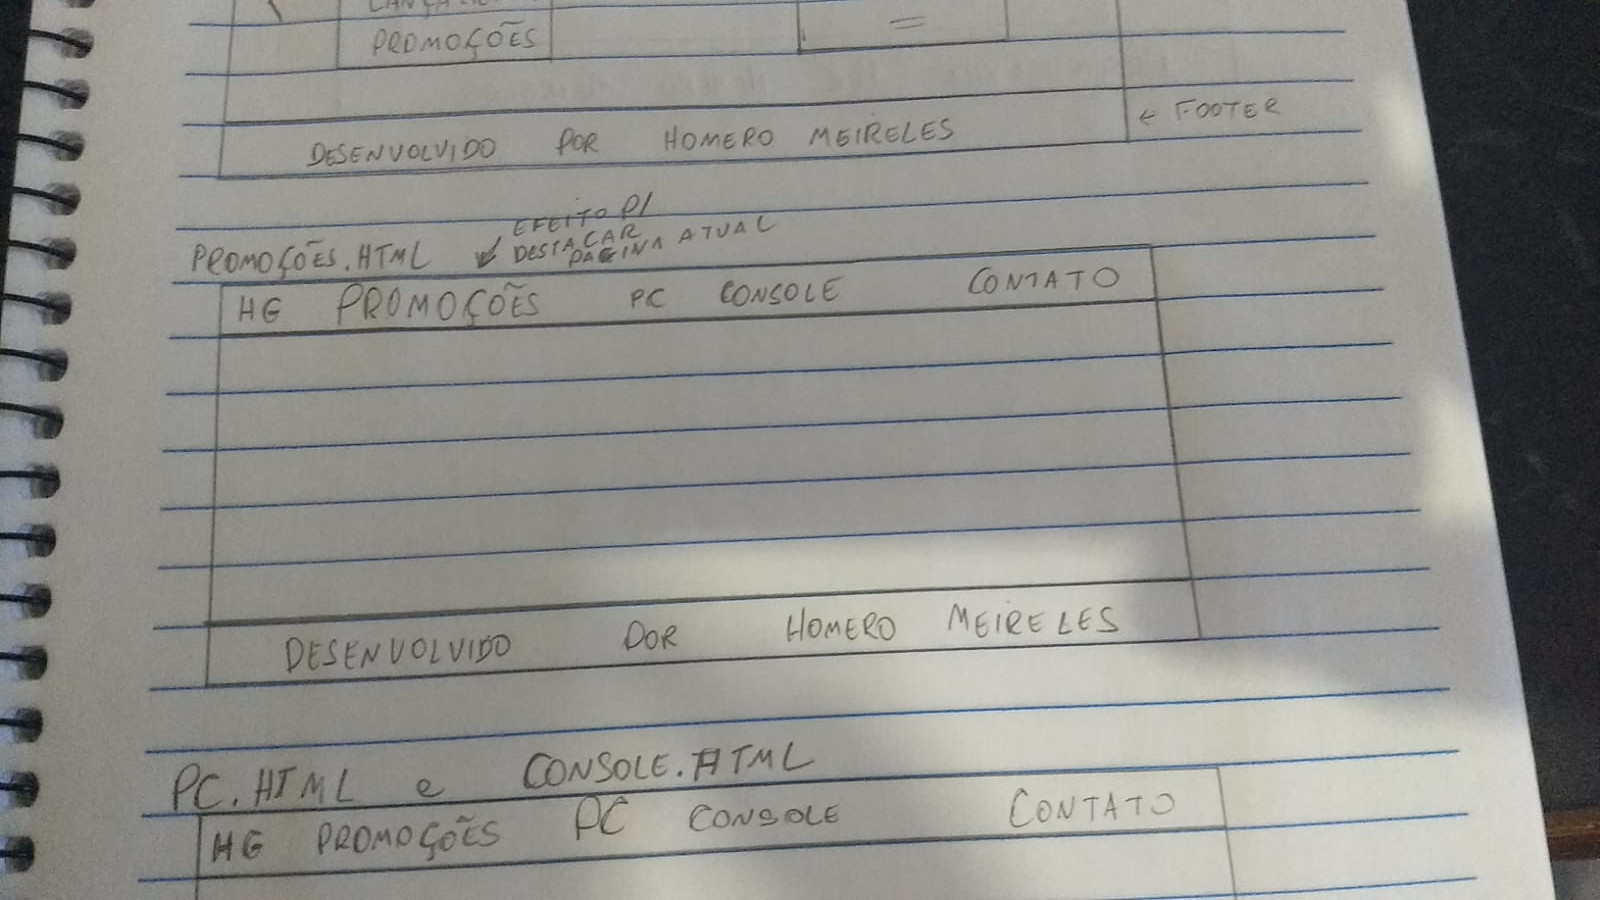 PROMOÇÕES
=
DESENVOLVIDO POR HOMERO MEIRELES
← FOOTER
PROMOÇÕES.HTML
EFEITO P/
DESTACAR
PAGINA ATUAL
HG PROMOÇÕES PC CONSOLE CONTATO
DESENVOLVIDO POR HOMERO MEIRELES
PC.HTML e CONSOLE.HTML
HG PROMOÇÕES PC CONSOLE CONTATO